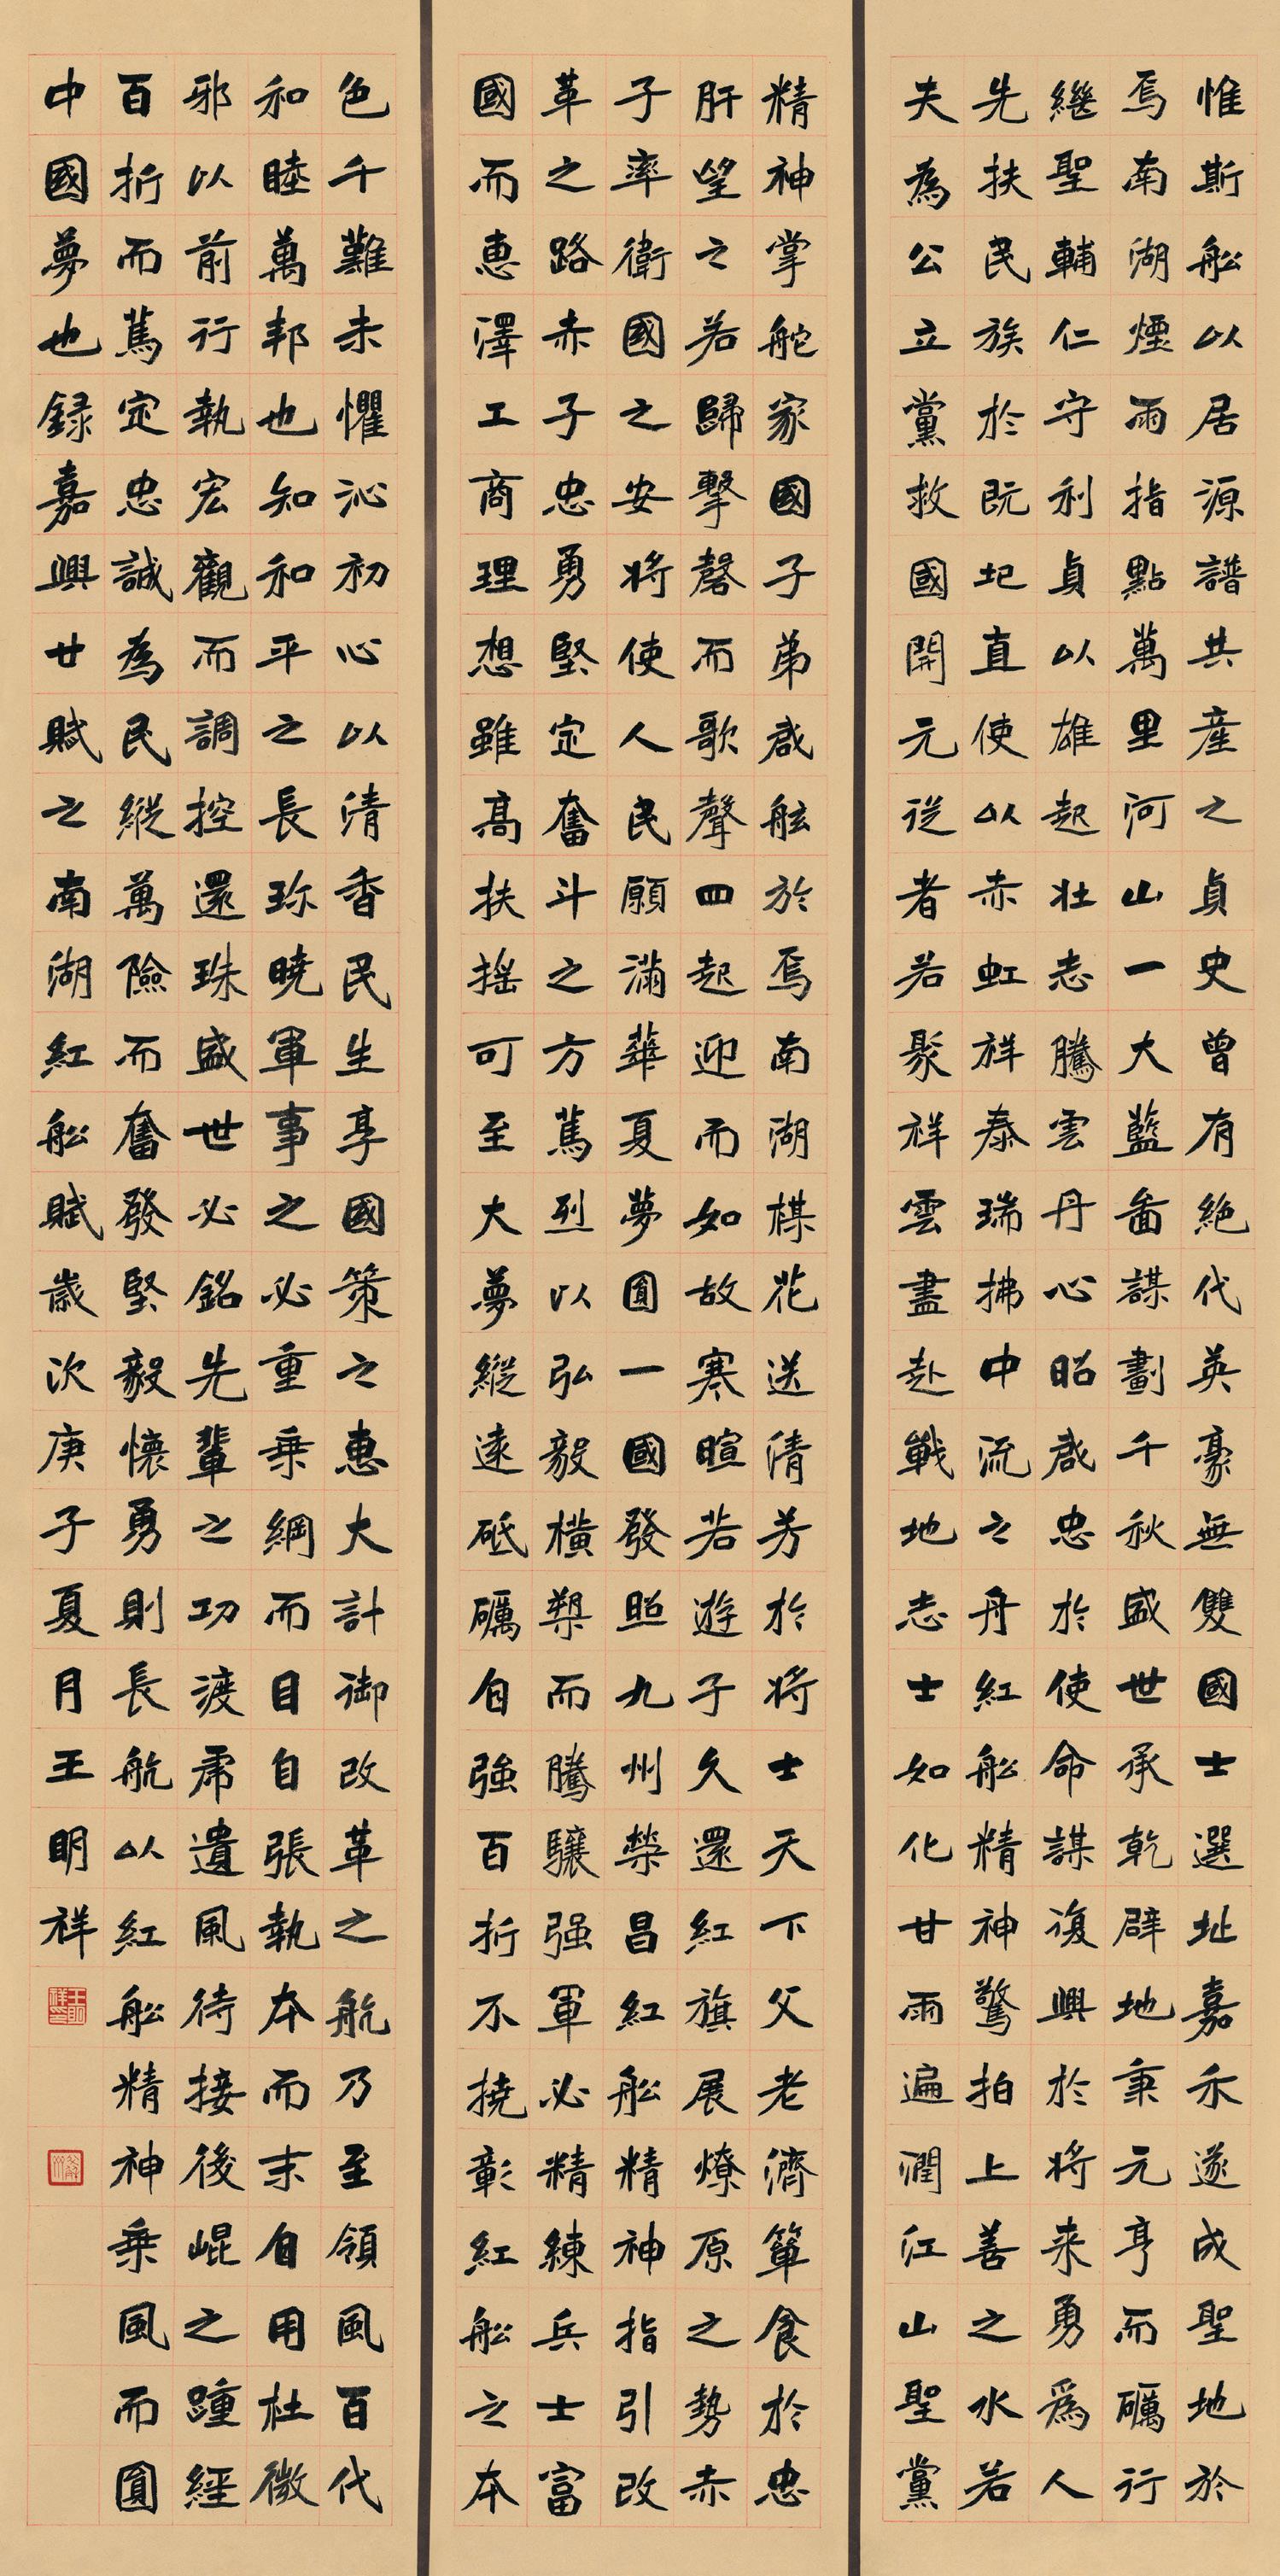 惟斯船以居源譜共産之貞史曾有絶代英豪無雙國士選址嘉禾遂成聖地於
焉南湖煙雨指點萬里河山一大藍啚謀劃千秋盛世承乾辟地秉元亨而礪行
繼聖輔仁守利貞以雄起壯志騰雲丹心昭感忠於使命謀復興於将来勇爲人
先扶民族於既圮直使以赤虹祥泰瑞拂中流之舟紅船精神驚拍上善之水若
夫為公立黨救國開元從者若聚祥雲盡赴戰地志士如化甘雨遍潤江山聖黨
精神掌舵家國子弟咸舷於焉南湖楳花送清芳於将士天下父老濟簞食於忠
肝望之若歸擊磬而歌聲四起迎而如故寒暄若遊子久還紅旗展燎原之勢赤
子率衛國之安将使人民願滿華夏夢圓一國發照九州榮昌紅船精神指引改
革之路赤子忠勇堅定奮斗之方篤烈以弘毅橫槊而騰驤强軍必精練兵士富
國而惠澤工商理想雖高扶搖可至大夢縱遠砥礪自強百折不撓彰紅船之本
色千難未懼沁初心以清香民生享國策之惠大計御改革之航乃至領風百代
和睦萬邦也知和平之長珎曉軍事之必重乗綱而目自張執本而末自用杜微
邪以前行執宏觀而調控還珠盛世必銘先輩之功渡帰遺風待接後崐之踵經
百折而篤定忠誠為民縱萬險而奮發堅毅懐勇則長航以紅船精神乗風而圓
中國夢也録嘉興廿賦之南湖紅船賦歳次庚子夏月王明祥